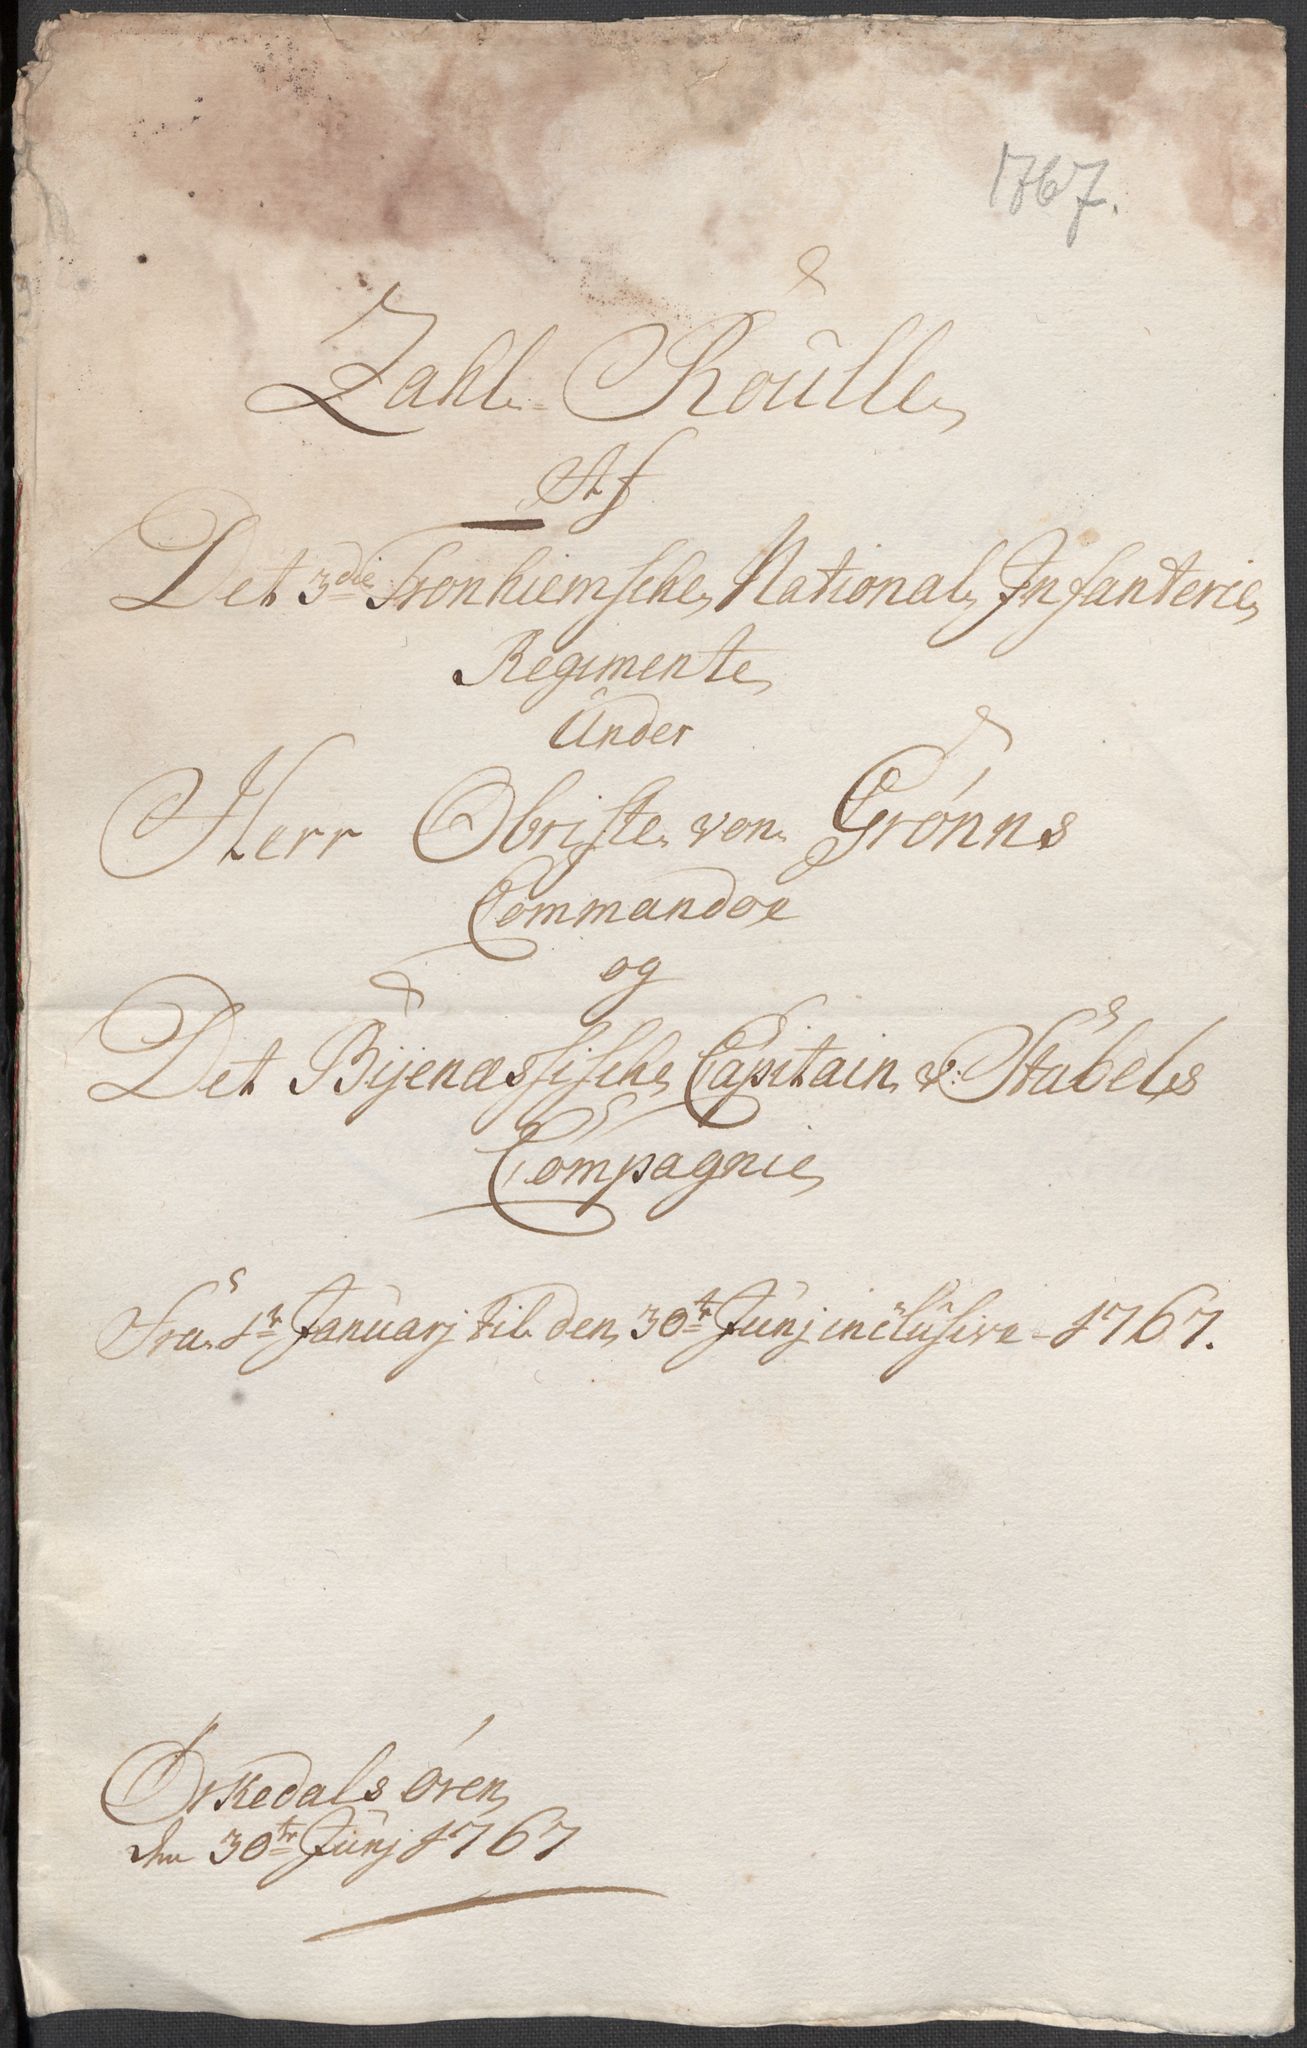 1767.
Zahl-Roulle
Af
Det 3die Tronhiemsche National Infanterie
Regimente
Under
Herr Obriste von Grönns
Commandoe
og
Det Bÿenæssische Capitain v: Stabels
Compagnie
Fra 1tr Januarj til den 30tr Junj inclusive 1767.
Ørkedals øren
den 30tr Junj 1767